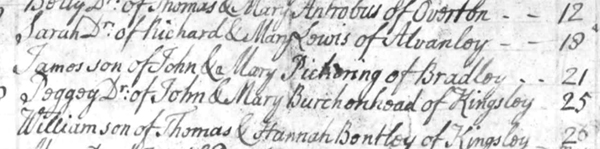 Betty Dr. of Thomas & Mary Antrobus of Overton - - 12
Sarah Dr. of Richard & Mary Lewis of Alvanley - - 18
James son of John & Mary Pickering of Bradley - - 21
Peggey Dr. of John & Mary Burchenhead of Kingsley - 25
William son of Thomas & Hannah Bentley of Kingsley -